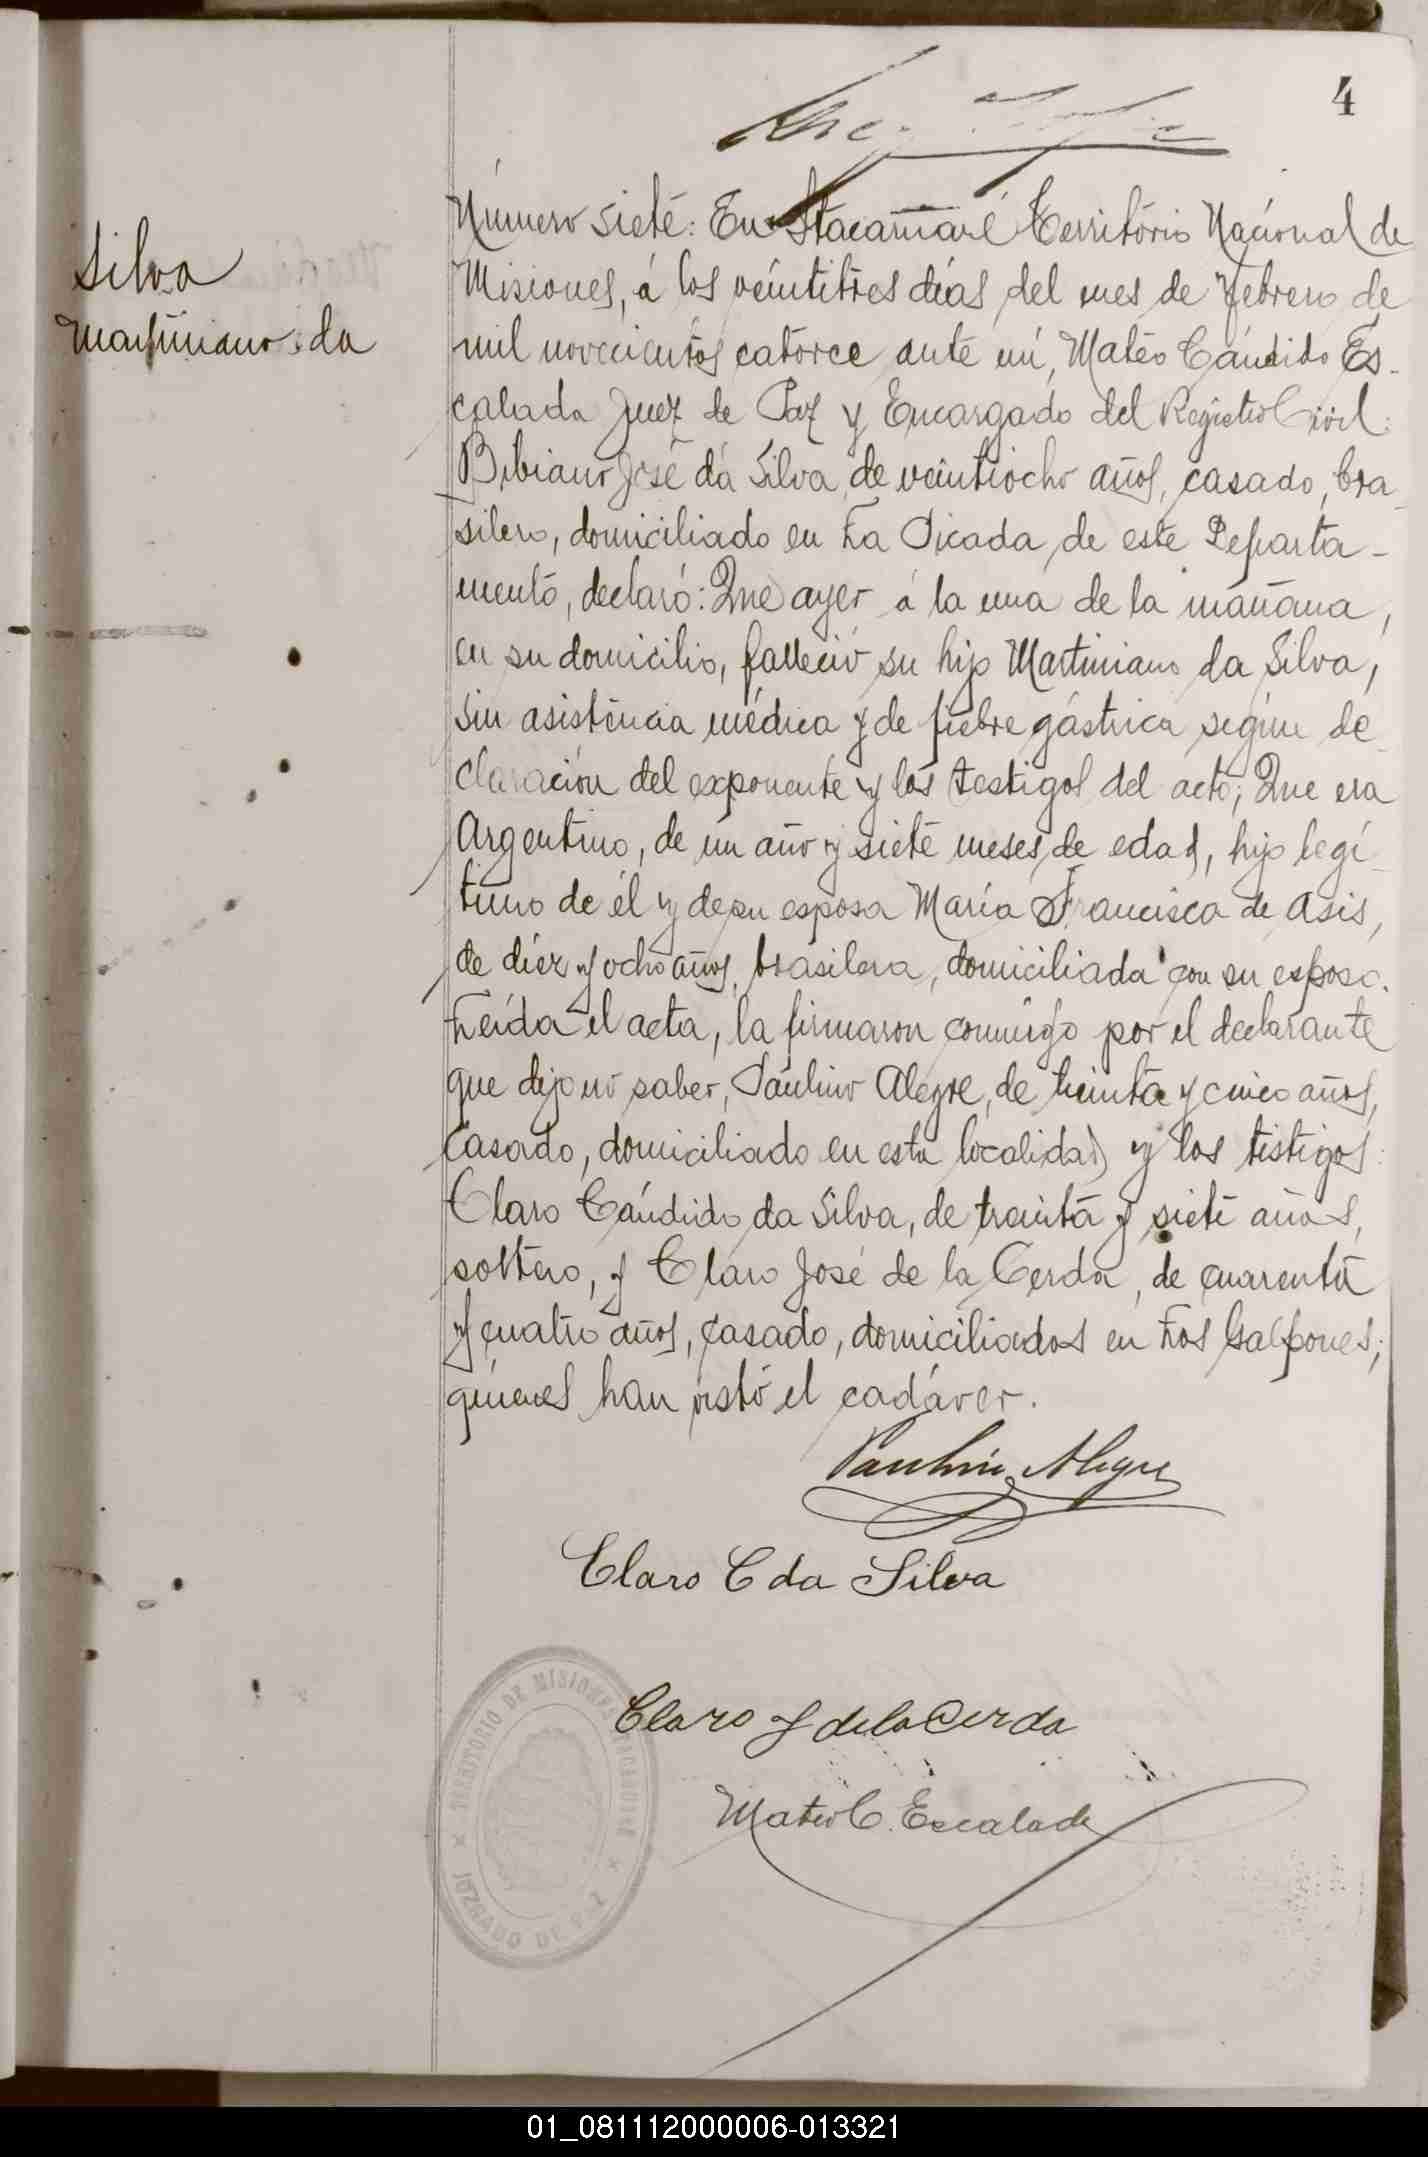 4
Silva
Martiniano da
Número siete: En Itacaruaré Território Nacional de
Misiones, á los veintitres días del mes de Febrero de
mil novecientos catorce ante mí, Mateo Cándido Es-
calada Juez de Paz y Encargado del Registro Civil:
Bibiano José da Silva, de veintiocho años, casado, bra-
silero, domiciliado en La Picada de este Departa-
mento, declaró: Que ayer á la una de la mañana,
en su domicilio, falleció su hijo Martiniano da Silva,
sin asistencia médica y de fiebre gástrica según de-
claración del exponente y los testigos del acto; Que era
Argentino, de un año y siete meses de edad, hijo legí-
timo de él y de su esposa María Francisca de Asis,
de diez y ocho años, brasilera, domiciliada con su esposo.
Leída el acta, la firmaron conmigo por el declarante
que dijo no saber, Paulino Alegre, de treinta y cinco años,
casado, domiciliado en esta localidad y los testigos:
Claro Cándido da Silva, de treinta y siete años,
soltero, y Claro José de la Cerda, de cuarenta
y cuatro años, casado, domiciliados en Los Galpones;
quienes han visto el cadáver.
Paulino Alegre
Claro C da Silva
Claro J de la Cerda
Mateo C. Escalada
TERRITORIO DE MISIONES
JUZGADO DE PAZ
01_081112000006-013321